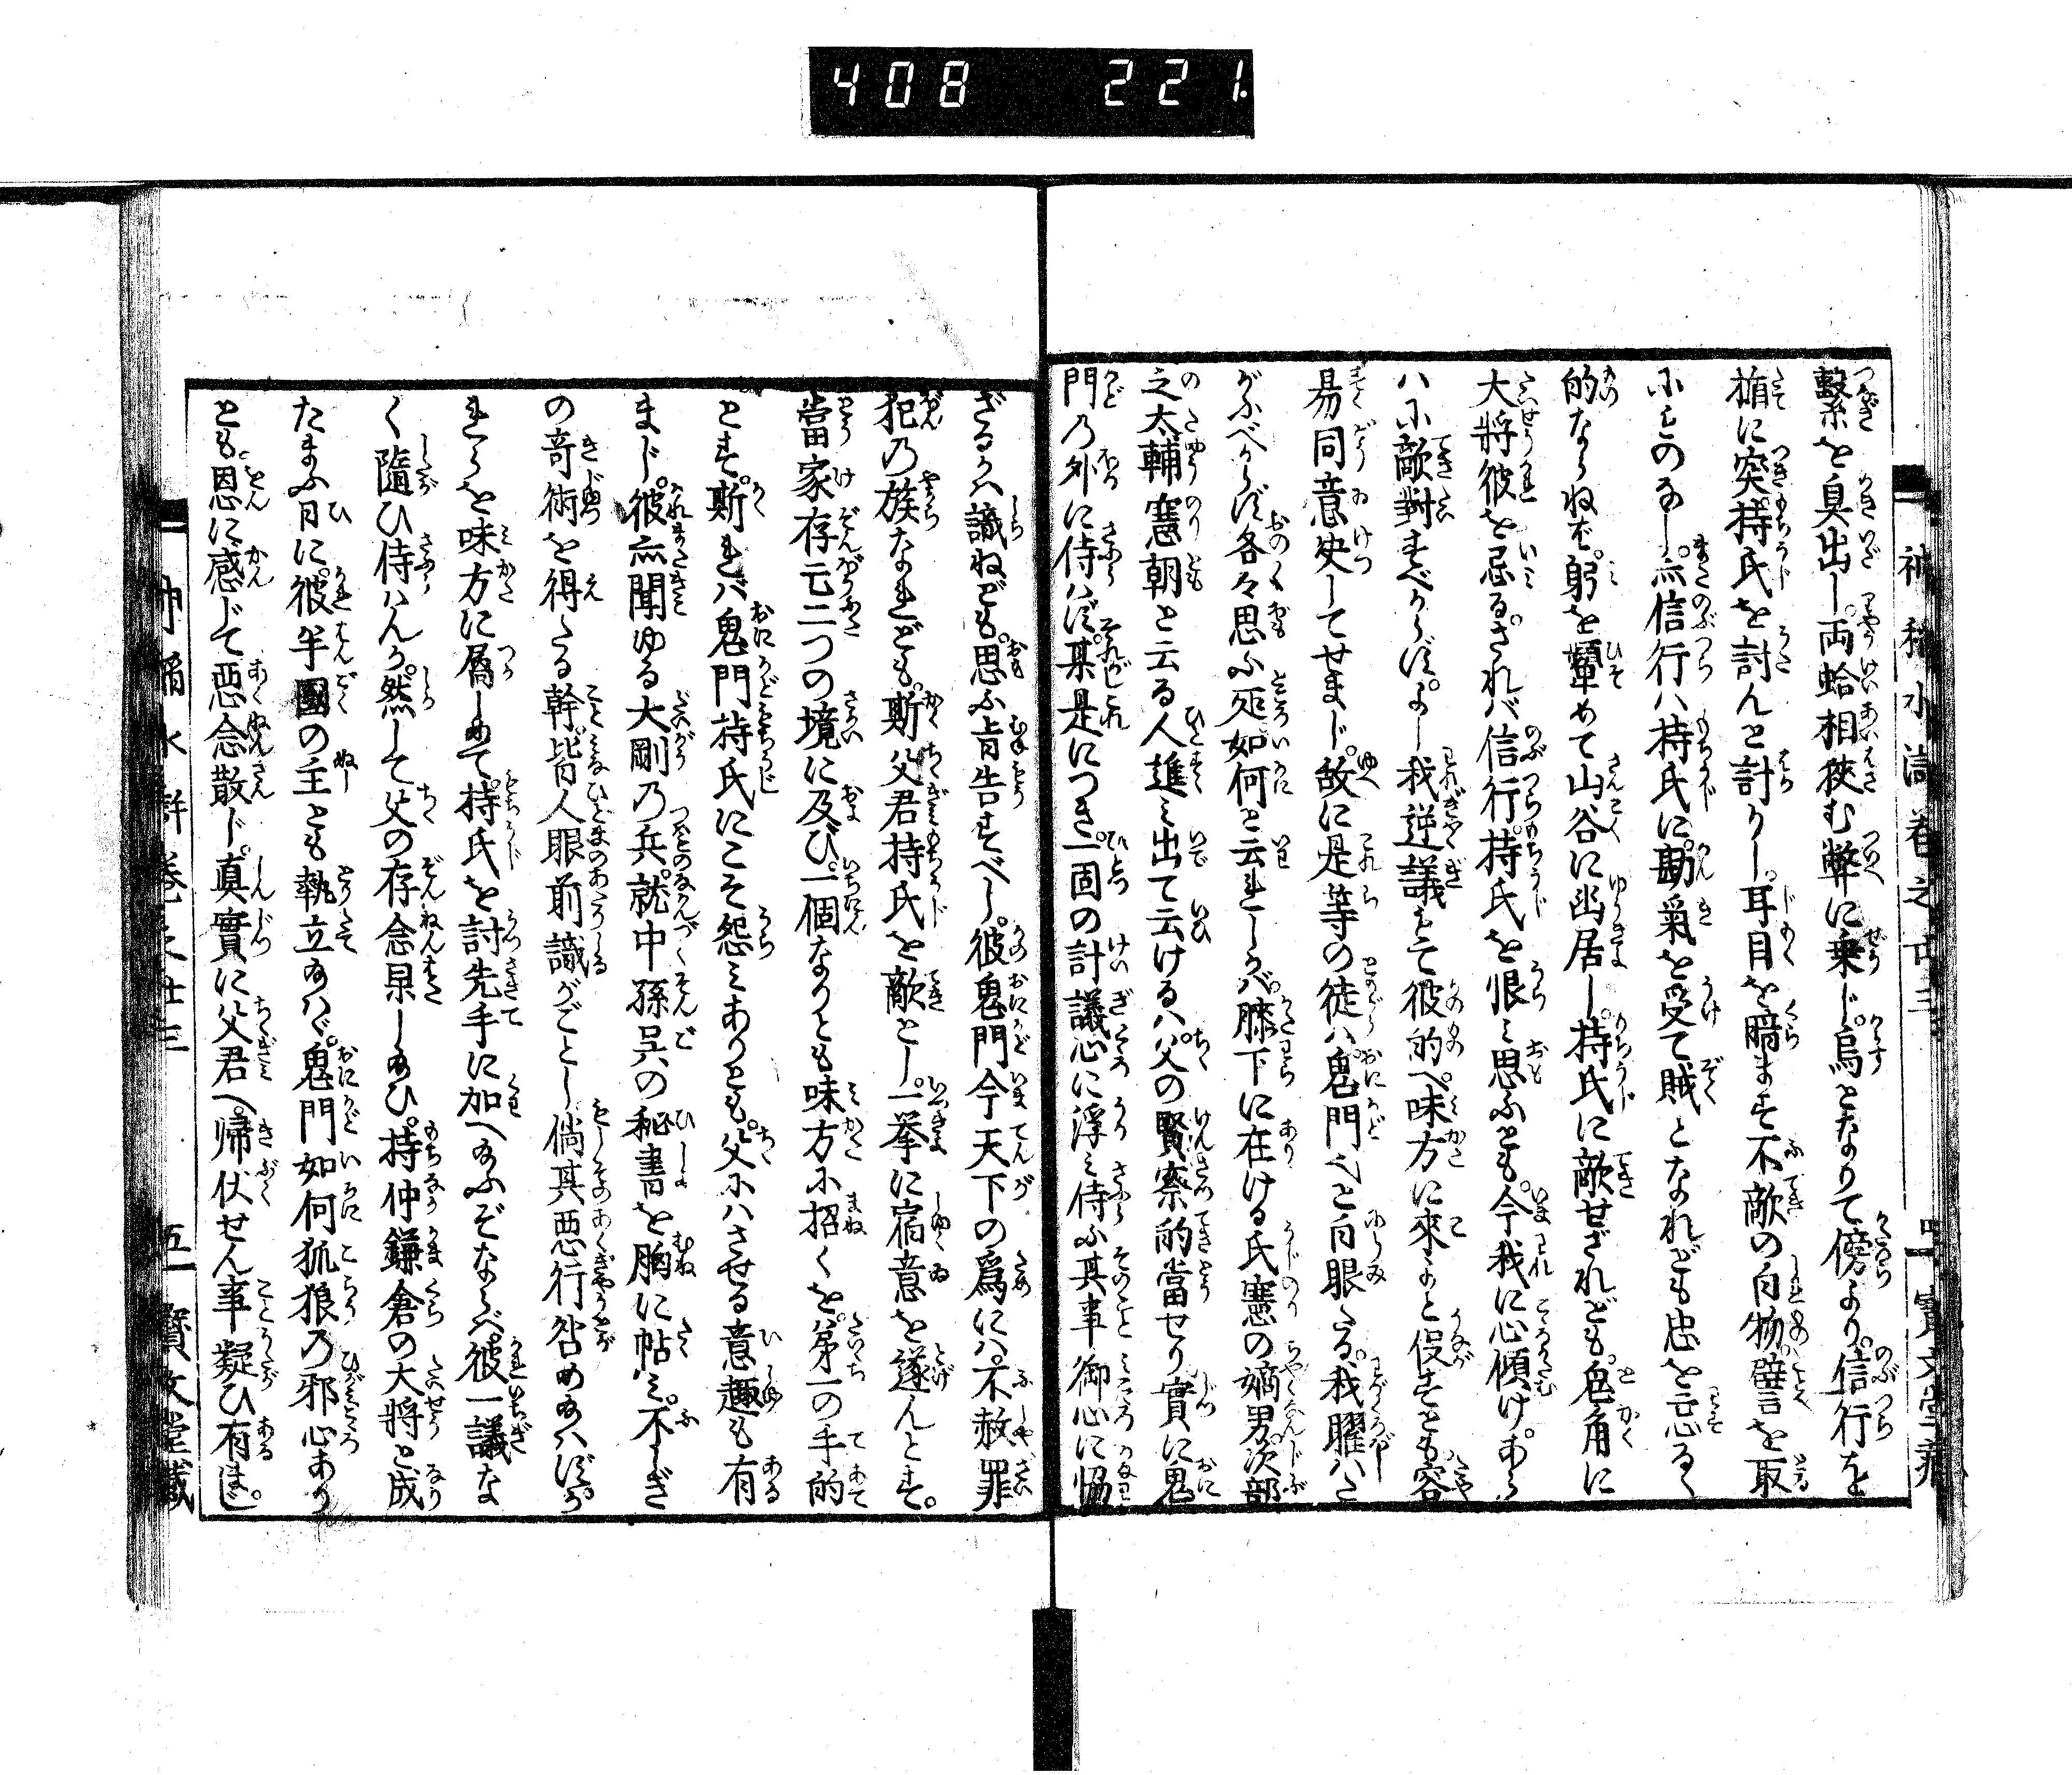 408 221.
繋を臭出し。両蛤相挾む弊に乗じ。烏となりて傍より。信行を
楯に突。持氏を討んと計りし。耳目を暗ます不敵の白物。譬を取
にものなし。亦信行ハ持氏に。勘氣を受て賊となれども忠を忘るゝ
的ならねど。躬を顰めて山谷に幽居し。持氏に敵せざれども。兎角に
大將彼を忌る。されバ信行。持氏を恨ミ思ふとも。今我に心傾け。あら
ハに敵對すべからず。よし我逆議を以て彼的へ。味方に來よと促すとも容
易同意决してせまじ。故に是等の徒ハ。鬼門也と白眼たる。我朦ハた
がふべからず各々思ふ処如何と云れしかバ。膝下に在ける氏憲の嫡男。次部
之太輔憲朝と云る人進ミ出て云けるハ。父の賢察的當せり實に鬼
門の外に侍ハず。某是につき。一固の計議心に浮ミ侍ふ其事御心に恊
ざるかハ識ねども。思ふ旨告すべし。彼鬼門今天下の爲にハ。不赦罪
犯の族なれども。斯父君持氏を敵とし。一挙に宿意を遂んとす。
當家存亡二つの境に及び。一個なりとも味方に招くを。第一の手的
とす。斯れバ鬼門持氏にこそ怨ミありとも。父にハさせる意趣も有
まじ。彼亦聞ゆる大剛の兵。就中孫呉の秘書を胸に帖ミ。不しぎ
の竒術を得たる幹。皆人眼前識がごとし倘其悪行咎め給ハず。か
れらを味方に属しめて。持氏を討先手に加へ給ふぞならべ。彼一議な
く隨ひ侍ハんか。然して父の存念果し給ひ。持仲鎌倉の大将と成
たまふ日に。彼半國の主とも執立給ハゞ。鬼門如何狐狼の邪心あり
とも恩に感じて悪念散じ。真實に父君へ。帰伏せん事疑ひ有まじ。
五 寶文堂藏